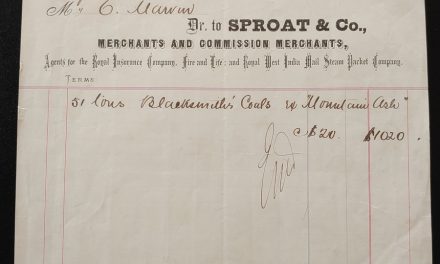 Mr. E. Marvin
Dr. to SPROAT & Co.,
MERCHANTS AND COMMISSION MERCHANTS,
Agents for the Royal Insurance Company, Fire and Life; and Royal West India Mail Steam Packet Company.
TERMS
51 tons Blacksmith's Coals ex "Mountain Ash"
@ $20. $1020.